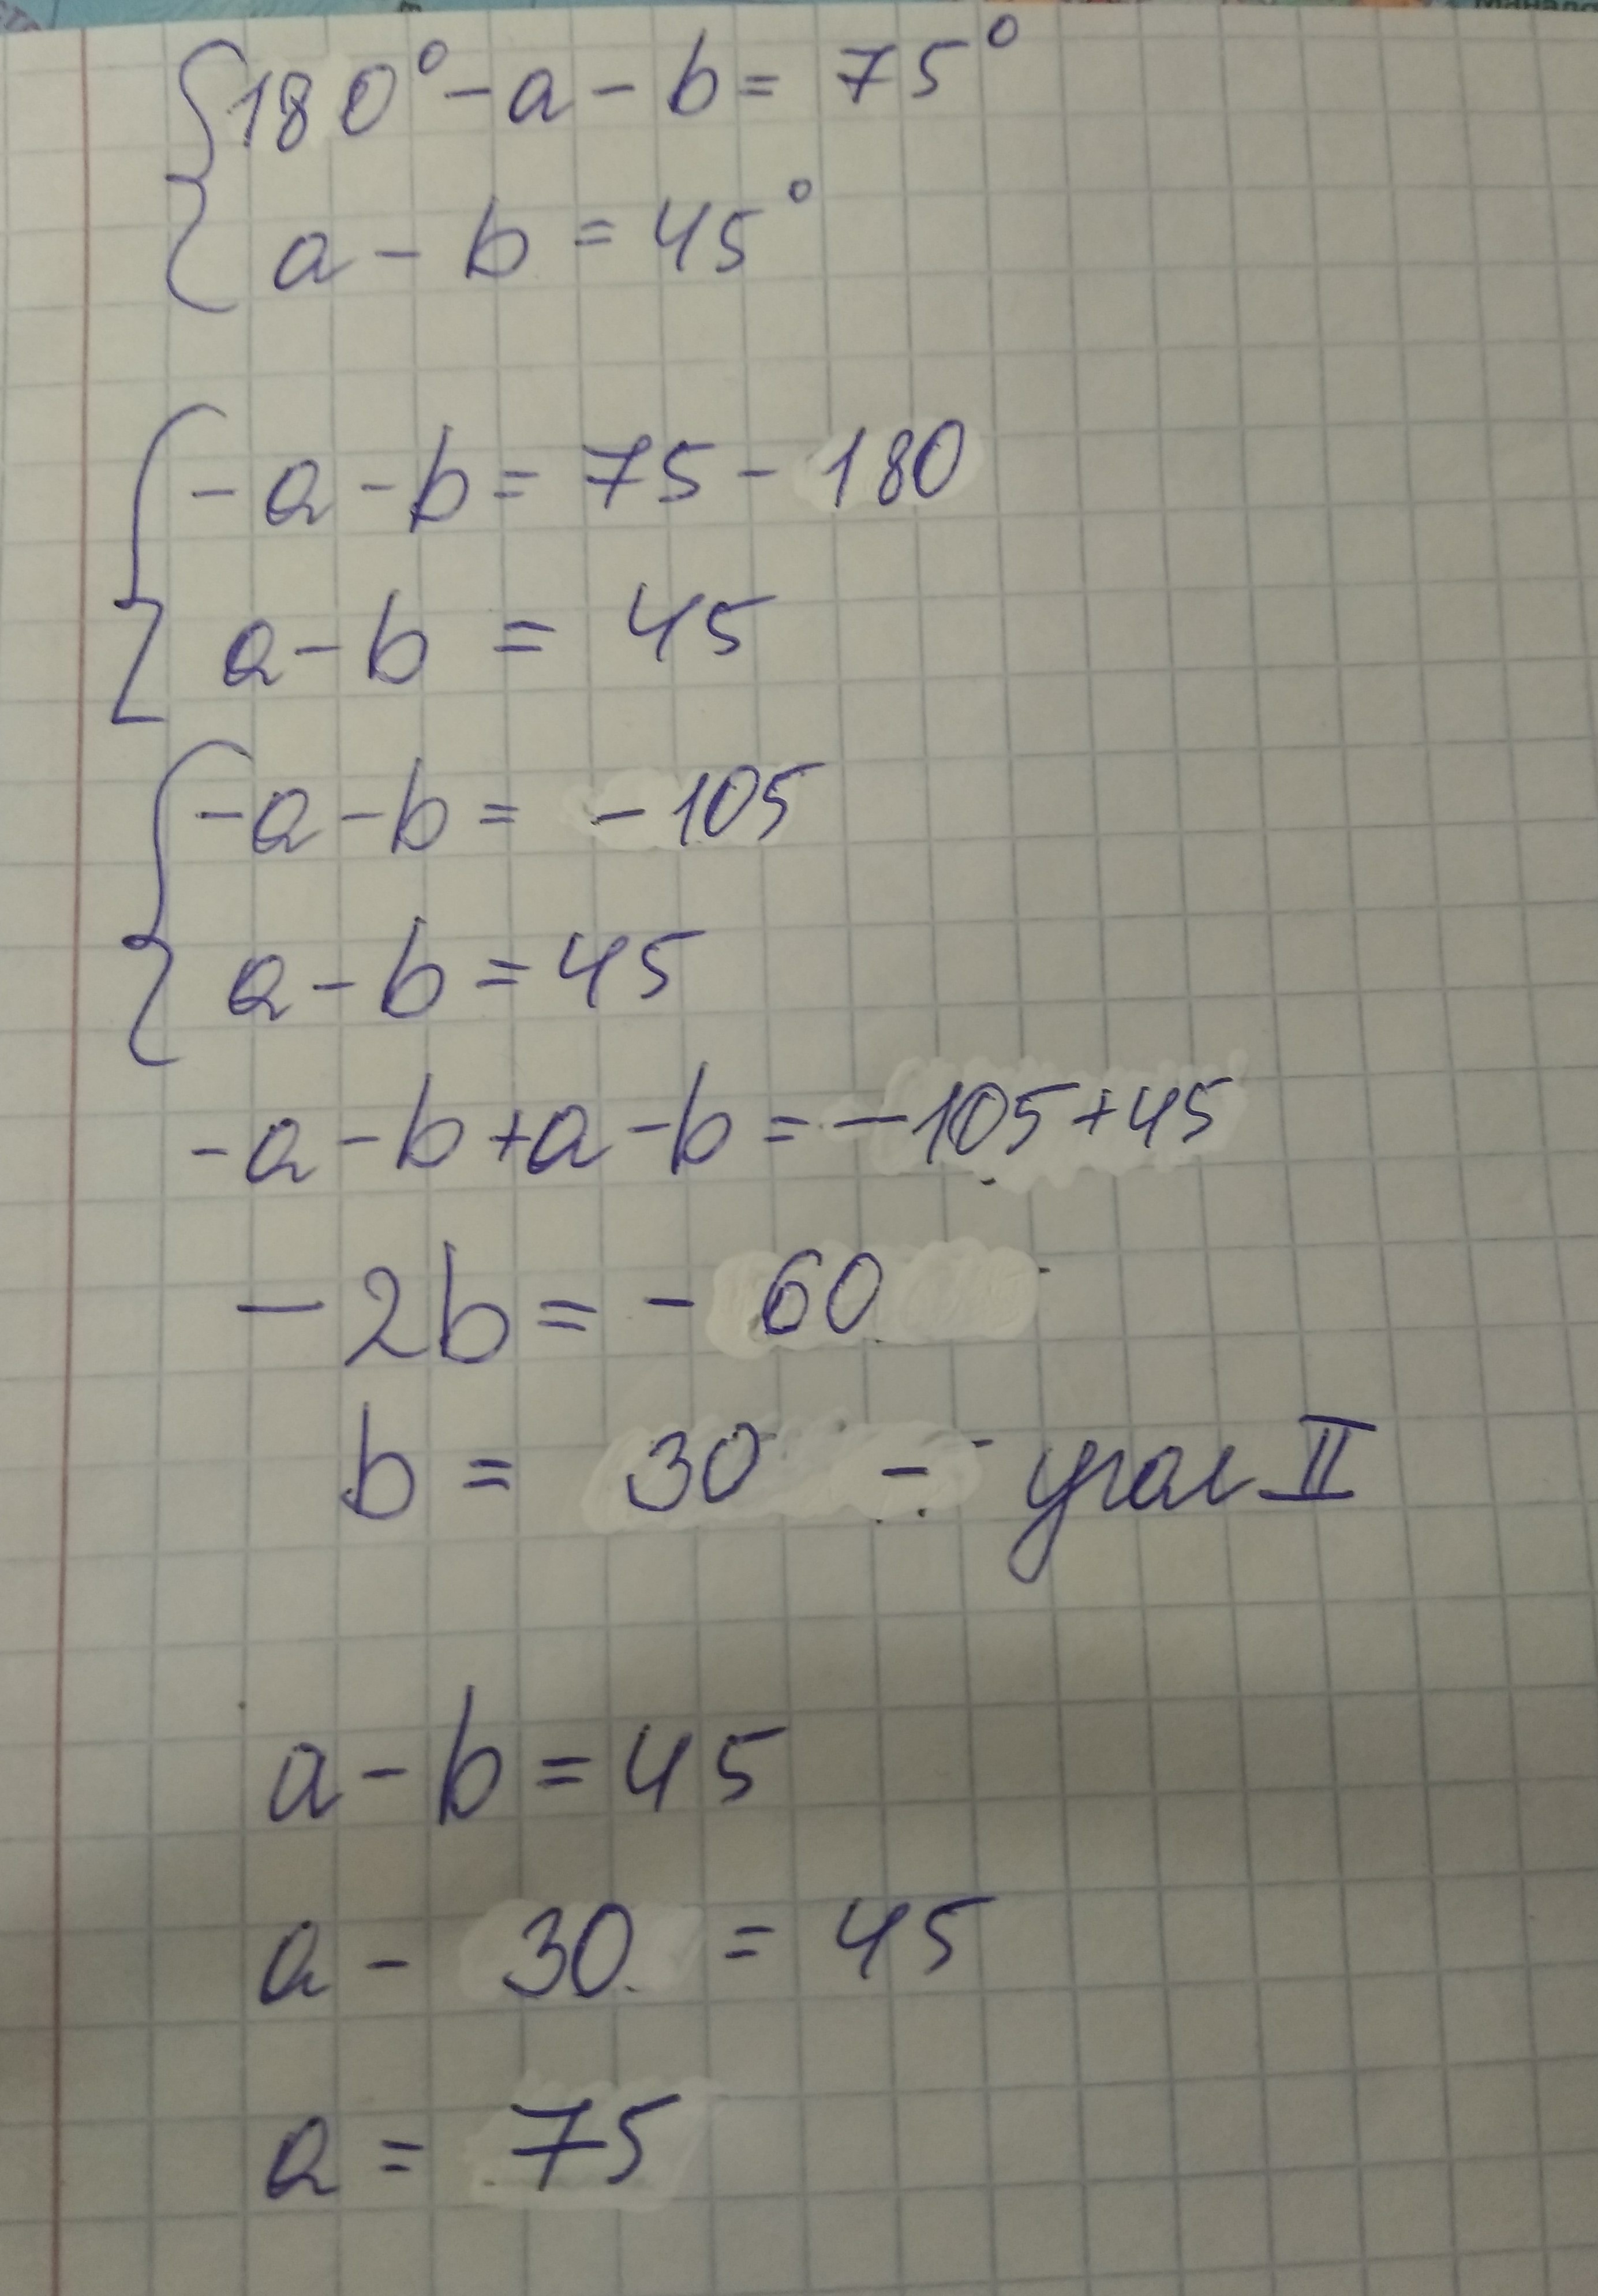 180° - a - b = 75°
a - b = 45°
-a - b = 75 - 180
a - b = 45
-a - b = -105
a - b = 45
-a - b + a - b = -105 + 45
-2b = -60
b = 30 - угол II
a - b = 45
a - 30 = 45
a = 75